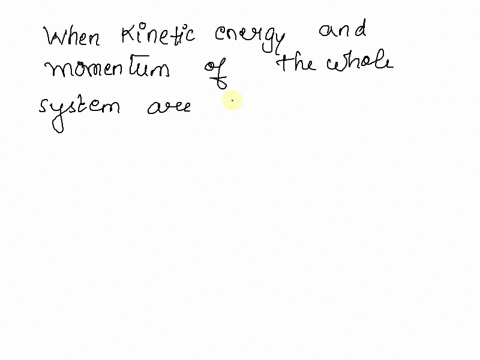 When Kinetic energy and
momentum of the whole
system are